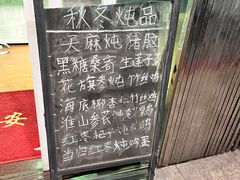 秋冬炖品
天麻炖猪脑
黑糖桑寄生莲子茶
花旗参炖竹丝鸡
海底椰杏仁竹丝鸡
淮山参芪炖鸡
红枣杞子炖鸡
当归红枣炖鸡蛋
安